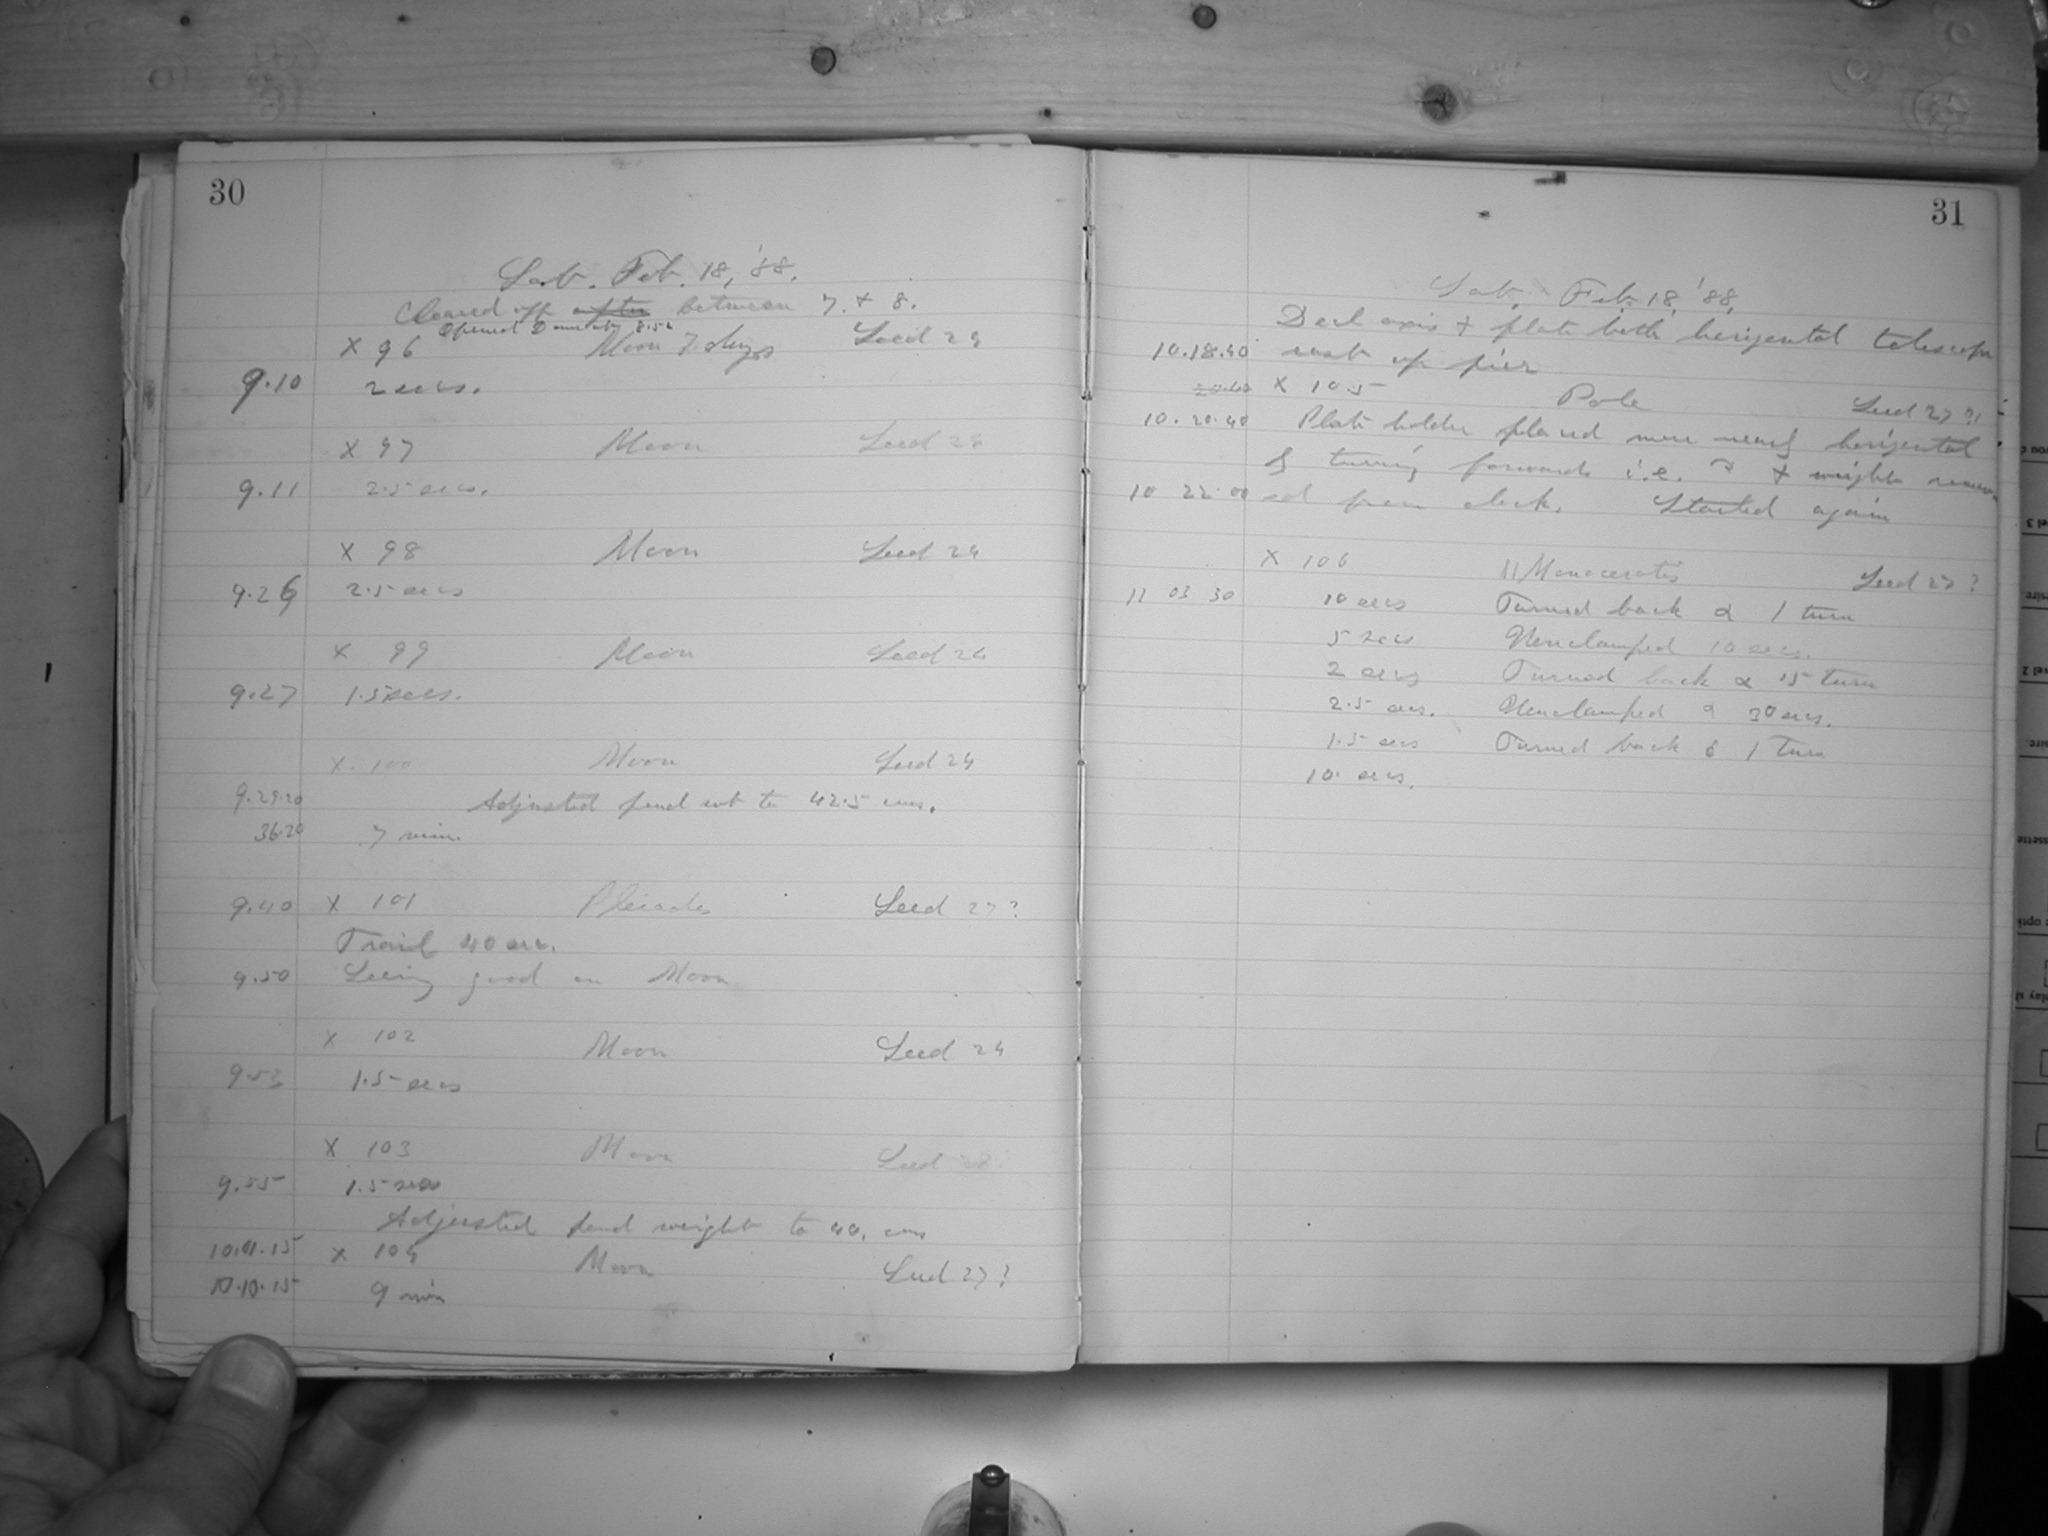 30
Sat. Feb. 18, '88.
Cleared off after between 7 & 8.
Opened Dome at 8.50
X 96 Moon 7 days Seed 24
9.10 2 secs.
X 97 Moon Seed 24
9.11 2.5 secs.
X 98 Moon Seed 24
9.26 2.5 secs
X 99 Moon Seed 24
9.27 1.5 secs.
X 100 Moon Seed 24
9.29.20 Adjusted pend wt to 42.5 cms.
36.20 7 min.
9.40 X 101 Pleiades Seed 27?
Trail 40 sec.
9.50 Seeing good on Moon
X 102 Moon Seed 24
9.53 1.5 secs
X 103 Moon Seed
9.55 1.5 secs
Adjusted pend weight to 40. cms
10.01.15 X 104 Moon Seed 27?
10.10.15 9 min
31
Sat. Feb. 18, '88.
Decl axis & plate both horizontal telescope
10.18.40 east of pier
20.40 X 105 Pole Seed 27?
10.20.40 Plate holder placed more nearly horizontal
by turning forwards i.e. & weights remov
10 22.00 ed from clock. Started again
X 106 11 Monocerotis Seed 27?
11 03 30 10 secs Turned back α 1 turn
5 secs Unclamped 10 secs.
2 secs Turned back α 15 turn
2.5 secs. Unclamped 30 secs.
1.5 secs Turned back δ 1 Turn
10. secs.